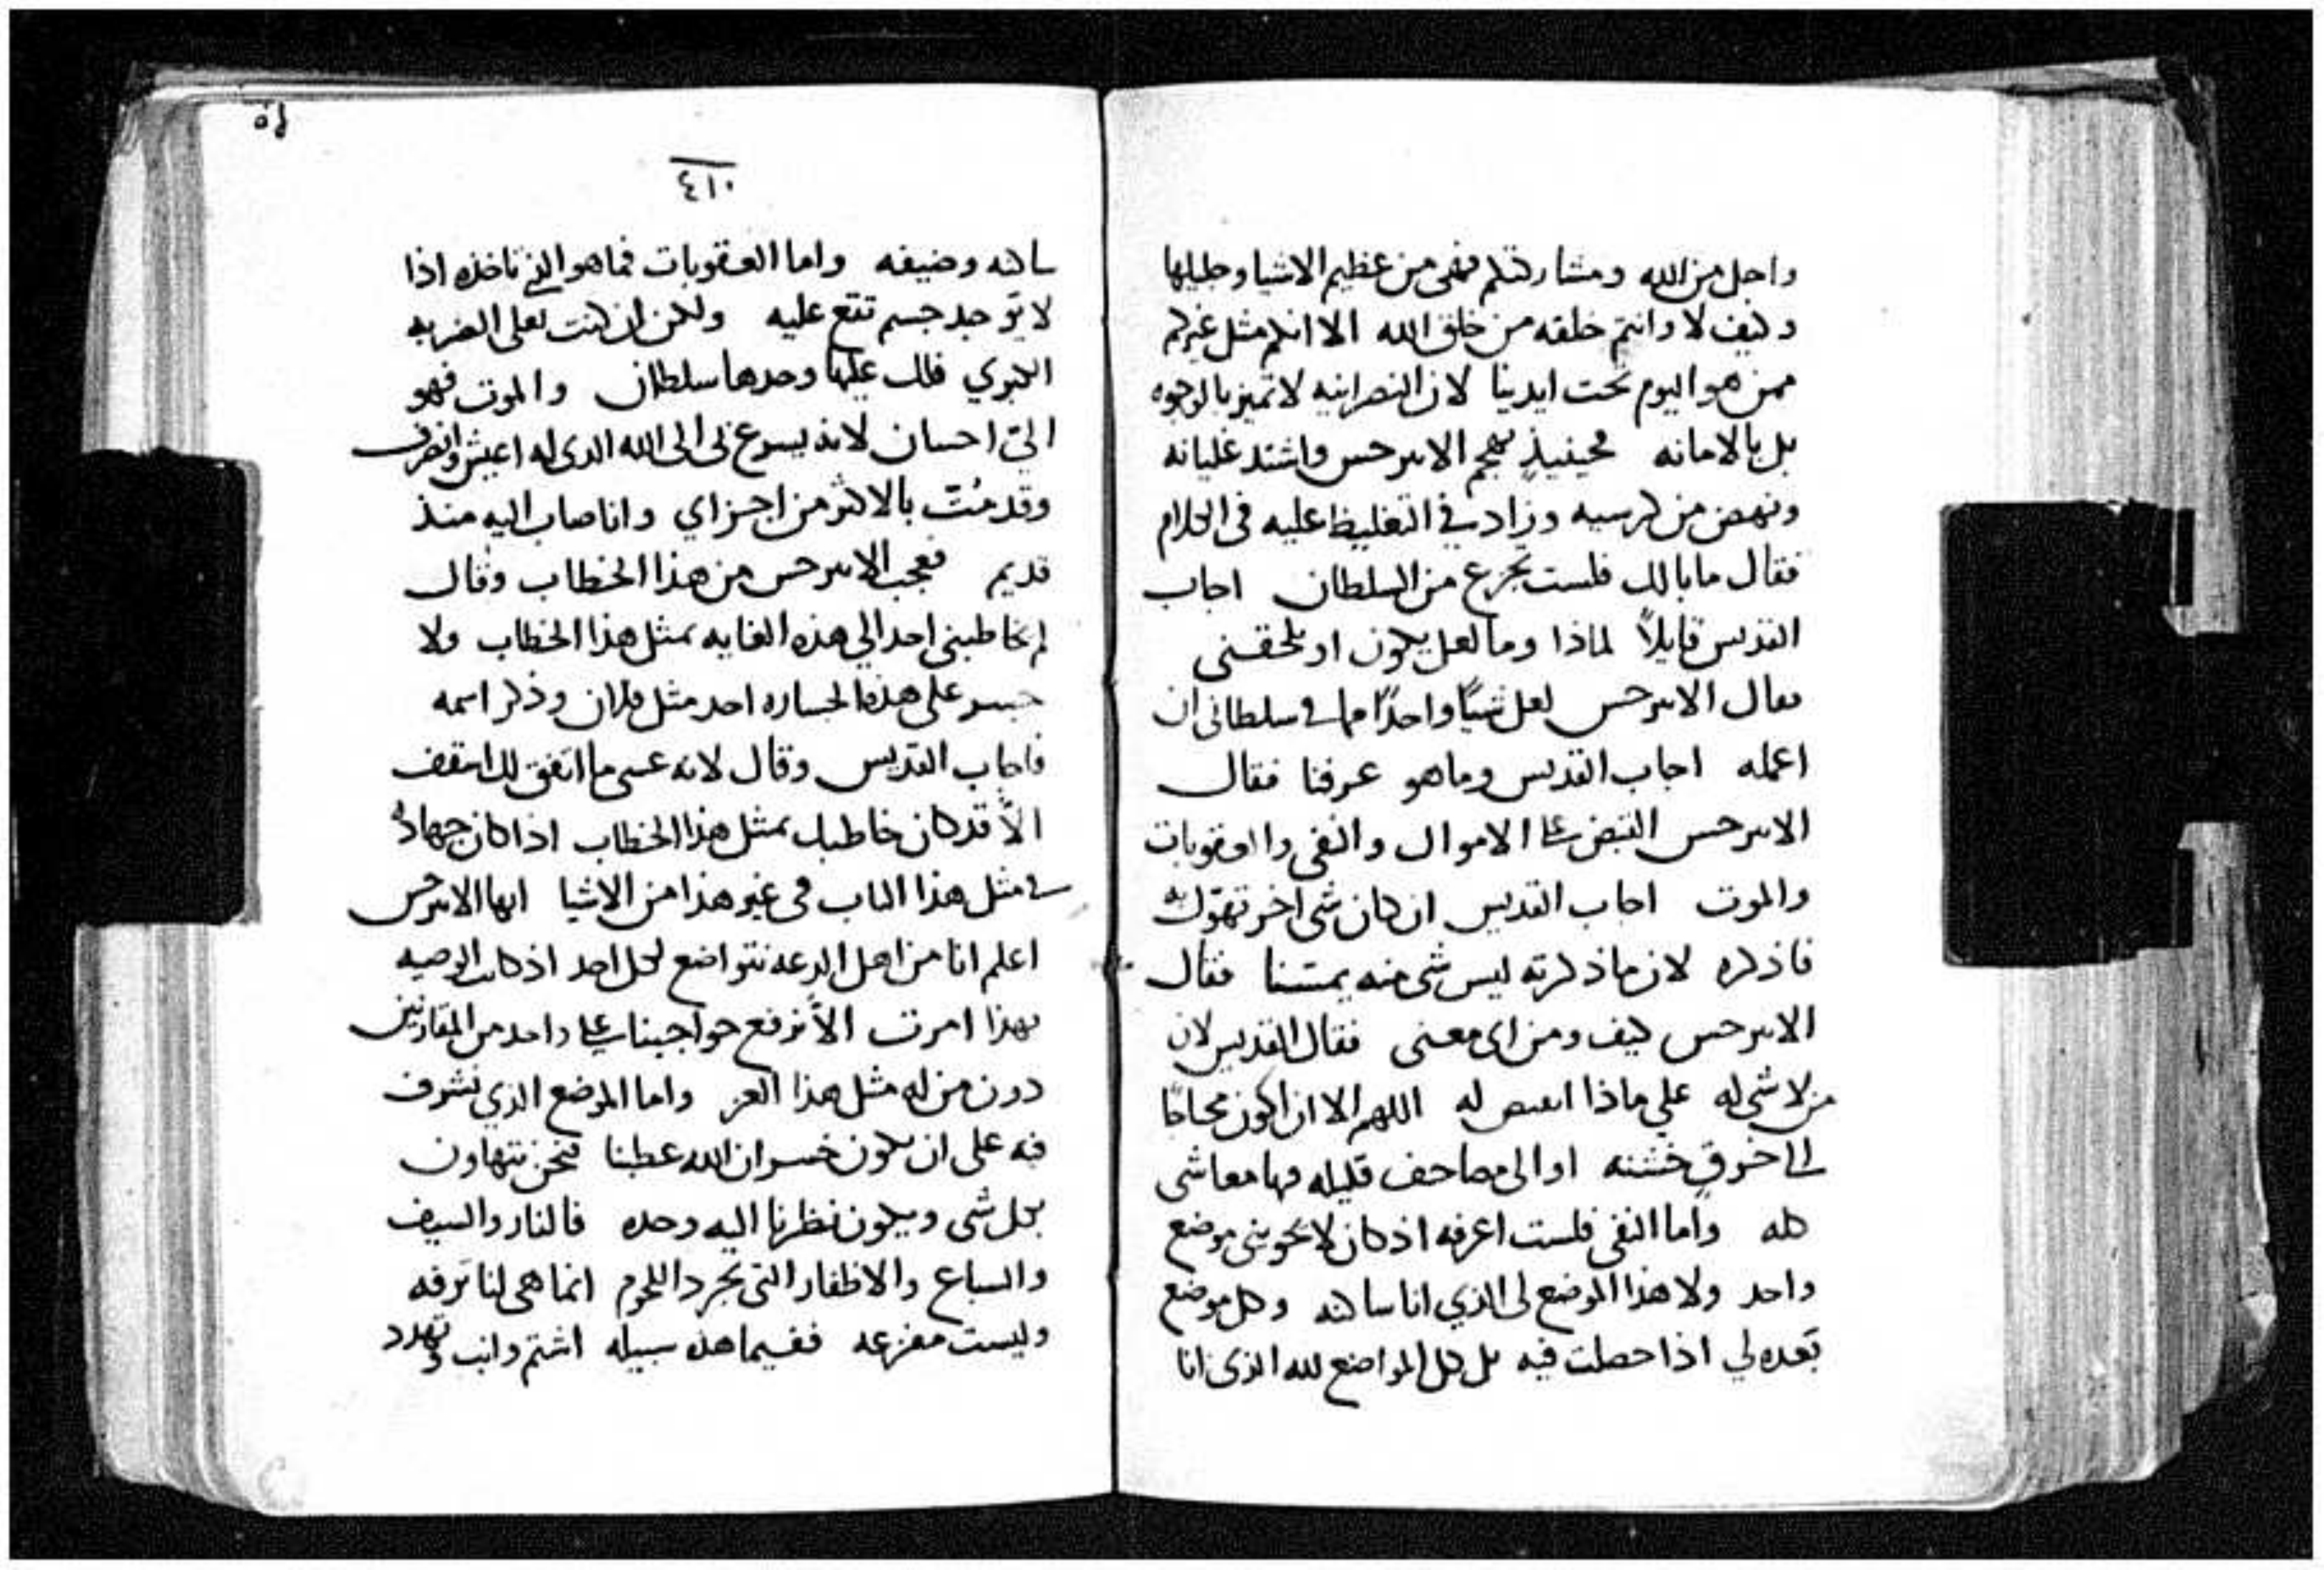 واجل من الله ومشاركتكم فهى من عظيم الاشيا وجليلها
وكيف لا وانتم خلقه من خلق الله الا انكم مثل غيركم
ممن هو اليوم تحت ايدينا لان النصرانيه لا تميز بالوجوه
بل بالامانه فحينيذٍ تهجم الابرخس واشتد غليانه
ونهض من كرسيه وزاد في التغليظ عليه فى الكلام
فقال ما بالك فلست تجزع من السلطان اجاب
القديس قايلاً لماذا وما لعل يكون او يلحقنى
فقال الابرخس لعل شياً واحدًا مما في سلطانى ان
اعمله اجاب القديس وما هو عرفنا فقال
الابرخس القبض على الاموال والنفى والعقوبات
والموت اجاب القديس ان كان شى اخر تهوّل به
فاذكره لان ما ذكرته ليس شى منه يمسّنا فقال
الابرخس كيف ومن اى معنى فقال القديس لان
من لا شى له علي ماذا يقبض له اللهم الا ان اكون محتاجًا
الى خرق خشنه او الى مصاحف قليله فيها معاشى
كله واما النفى فلست اعرفه اذ كان لا يحوينى موضع
واحد ولا هذا الموضع لى الذي انا ساكنه وكل موضع
بعده لي اذا حصلت فيه بل كل المواضع لله الذى انا
٥٤
٤١٠
ساكنه وضيفه واما العقوبات فما هو الذى تاخذه اذا
لا يوجد جسم تقع عليه ولكن ان كنت تعلى الضربه
الكبري فلك عليها وحدها سلطان والموت فهو
اليّ احسان لانه يسرع بى الى الله الدى له اعيش واتصرف
وقد مُتّ بالاكثر من اجزاي وانا صاب اليه منذ
قديم فعجب الابرخس من هذا الخطاب وقال
لم يخاطبنى احد الي هذه الغايه بمثل هذا الخطاب ولا
جسر على هذه الجساره احد مثل فلان وذكر اسمه
فاجاب القديس وقال لانه عسى ما اتفق لك اسقف
الاّ قد كان خاطبك بمثل هذا الخطاب اذا كان جهاده
في مثل هذا الباب فى غير هذا من الاشيا ايها الابرخس
اعلم انا من اهل الدعه نتواضع لكل احد اذ كانت الوصيه
بهذا امرت الاّ نرفع حواجبنا على واحد من المقارنين
دون من له مثل هذا العز واما الموضع الذي نشرف
فيه على ان يكون خسران الله عطبنا فنحن نتهاون
بكل شى ويكون نظرنا اليه وحده فالنار والسيف
والسباع والاظفار التى تجرد اللحوم انما هى لنا ترفه
وليست مفزعه ففيما هذه سبيله اشتم وانب وتهدد